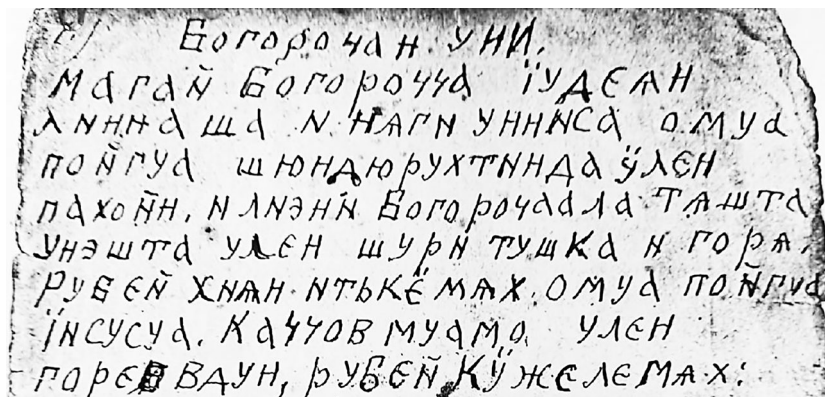 г) Богорочан. УНИ.
Магай Богорочча їудєѧн
линнаша и нѧги унниса омуа
пойгуа шюндюрухтинда ӱлєн
пахойн. и лиэнй Богорочаала тѧшта
унэшта улєн шури тушка и горѧ.
Рубєй хиѧн итькёмѧх. омуа пойгуа
їисусуа. Каччов муамо улєн
вдун, рубєй кӱжєлємѧх: